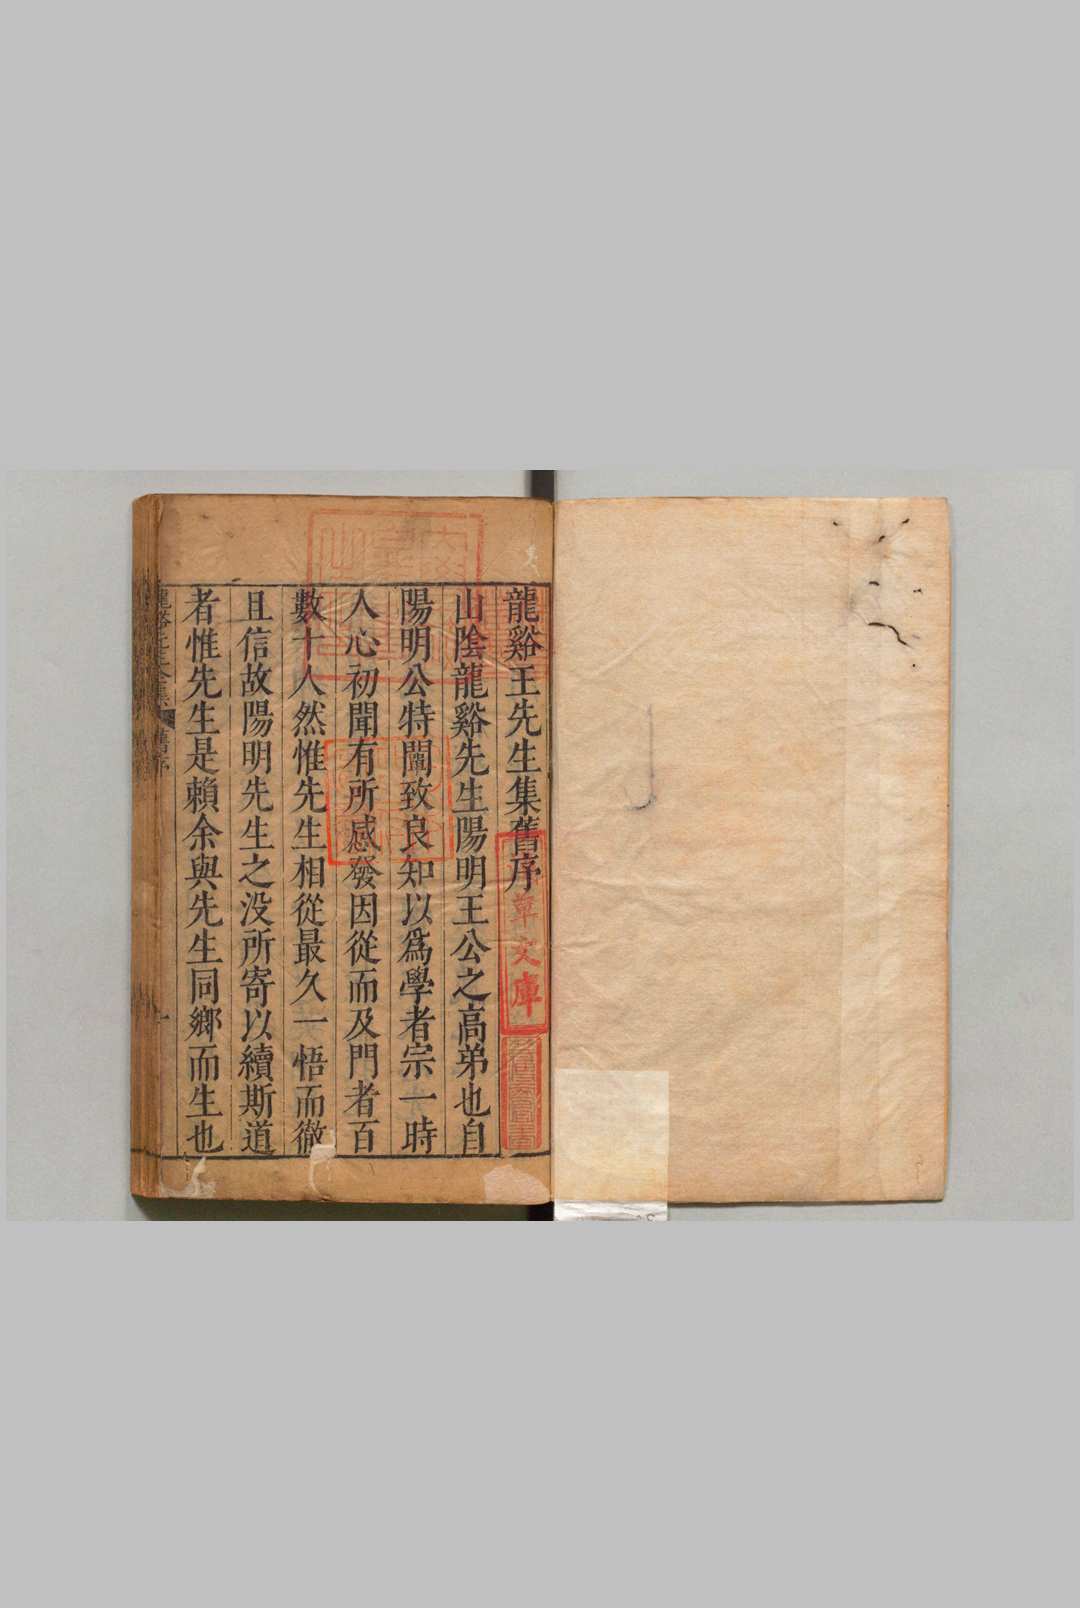 龍谿王先生集舊序
山陰龍谿先生陽明王公之高弟也自
陽明公特闡致良知以爲學者宗一時
人心初聞有所感發因從而及門者百
數十人然惟先生相從最久一悟而徹
且信故陽明先生之没所寄以續斯道
者惟先生是賴余與先生同鄉而生也
草文庫
舊序
一